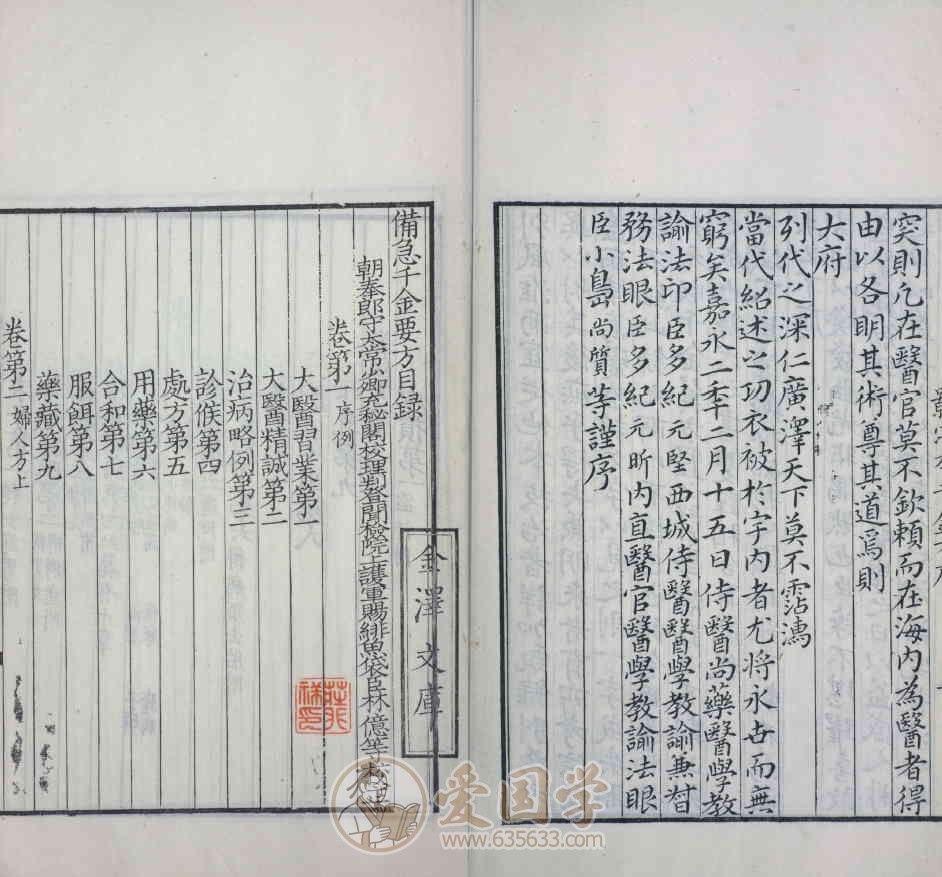 突則凡在醫官莫不欽賴而在海內為醫者得
由以各明其術尊其道焉則
大府
列代之深仁廣澤天下莫不霑濡
當代紹述之功衣被於宇內者尤將永世而無
窮矣嘉永二季十二月十五日侍醫尚藥醫學教
諭法印臣多紀元堅西城侍醫醫學教諭兼督
務法眼臣多紀元昕內直醫官醫學教諭法眼
臣小島尚質等謹序
備急千金要方目録
朝奉郎守太常少卿充秘閣校理判登聞檢院上護軍賜緋魚袋臣林億等校正
卷第一 序例
大醫習業第一
大醫精誠第二
治病略例第三
診候第四
處方第五
用藥第六
合和第七
服餌第八
藥藏第九
卷第二 婦人方上
金澤文庫
爱国学
www.635633.com